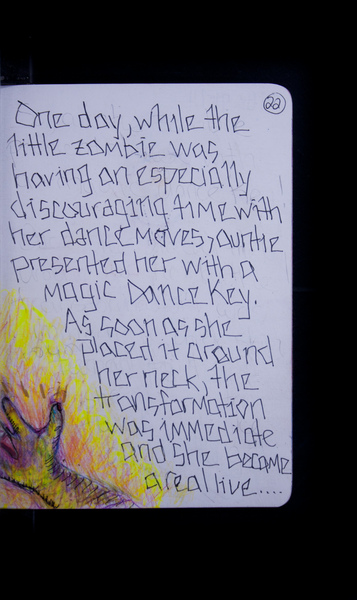 22
One day, while the
little zombie was
having an especially
discouraging time with
her dance moves, auntie
presented her with a
magic Dance Key.
As soon as she
placed it around
her neck, the
transformation
was immediate
and she became
a real live....